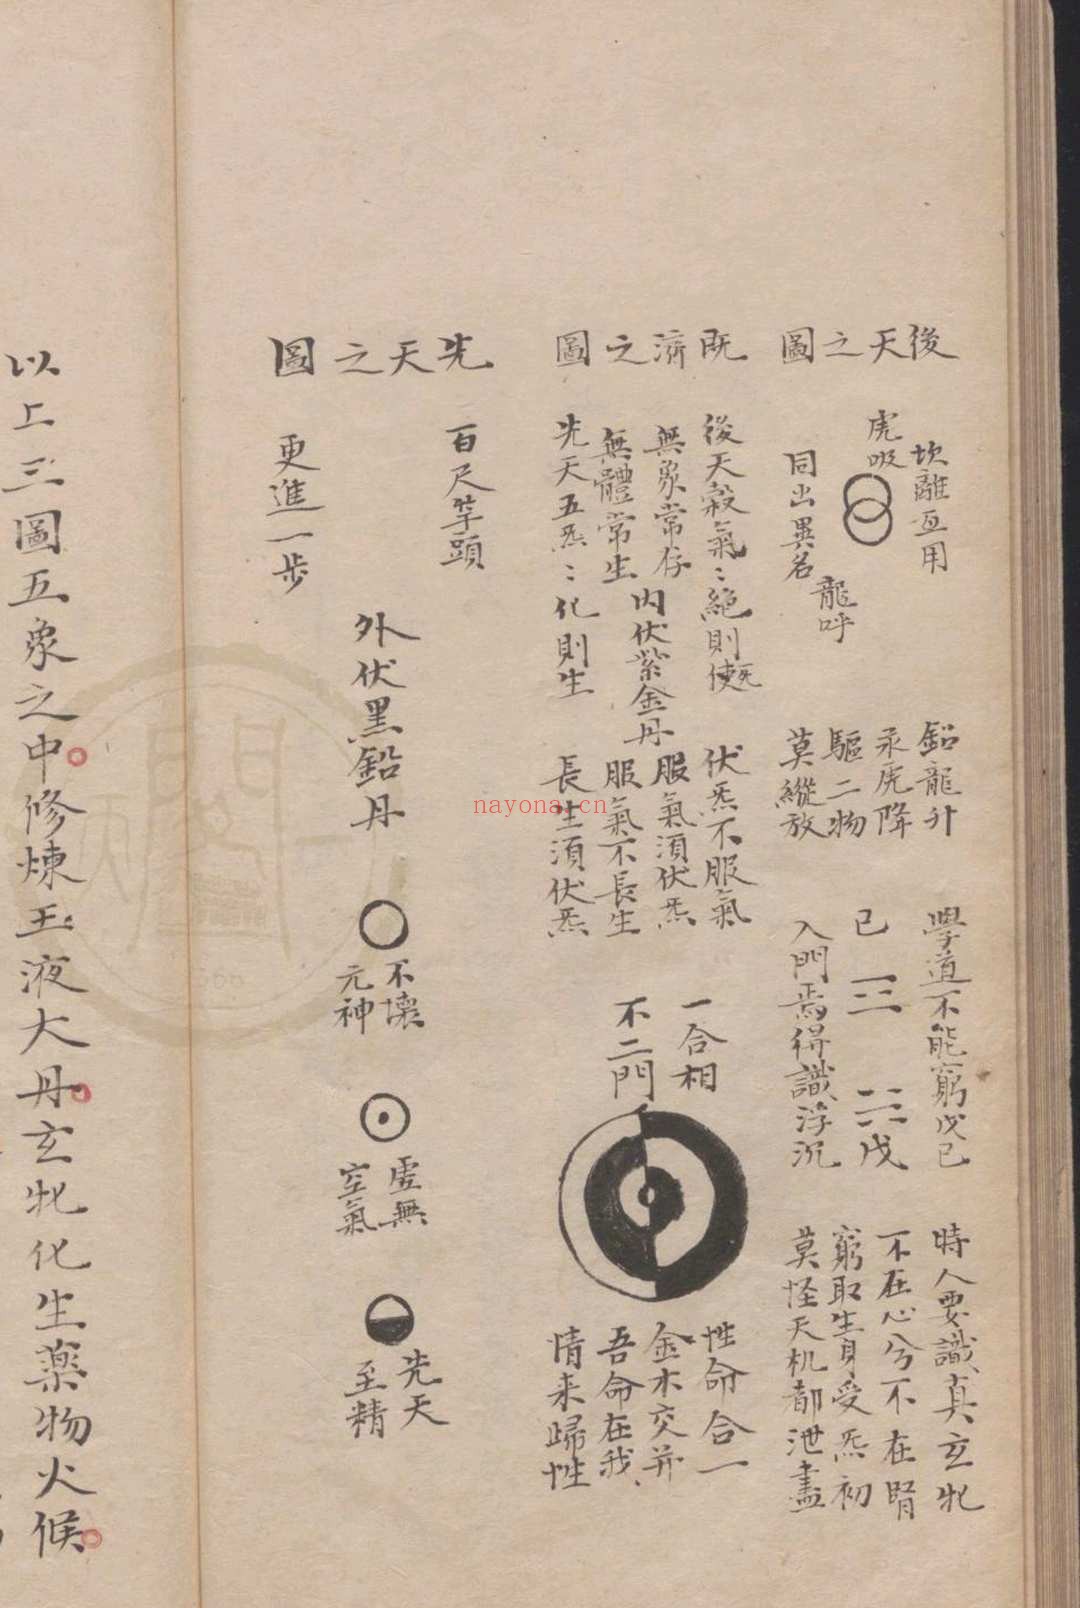 後天之圖
坎離互用
虎吸
同出異名
龍呼
鉛龍升
汞虎降
驅二物
莫縱放
學道不能窮戊己
己☲
☵戊
入門焉得識浮沉
時人要識真玄牝
不在心兮不在腎
窮取生身受炁初
莫怪天机都泄盡
既濟之圖
後天穀氣〻絕則死
無象常存
無體常生
先天五炁〻化則生
內伏紫金丹
伏炁不服氣
服氣須伏炁
服氣不長生
長生須伏炁
一合相
不二門
性命合一
金木交并
吾命在我
情来歸性
先天之圖
百尺竿頭
更進一步
外伏黑鉛丹
不壞
元神
虛無
空氣
先天
至精
以上三圖五象之中修煉玉液大丹玄牝化生藥物火候
nayona.cn